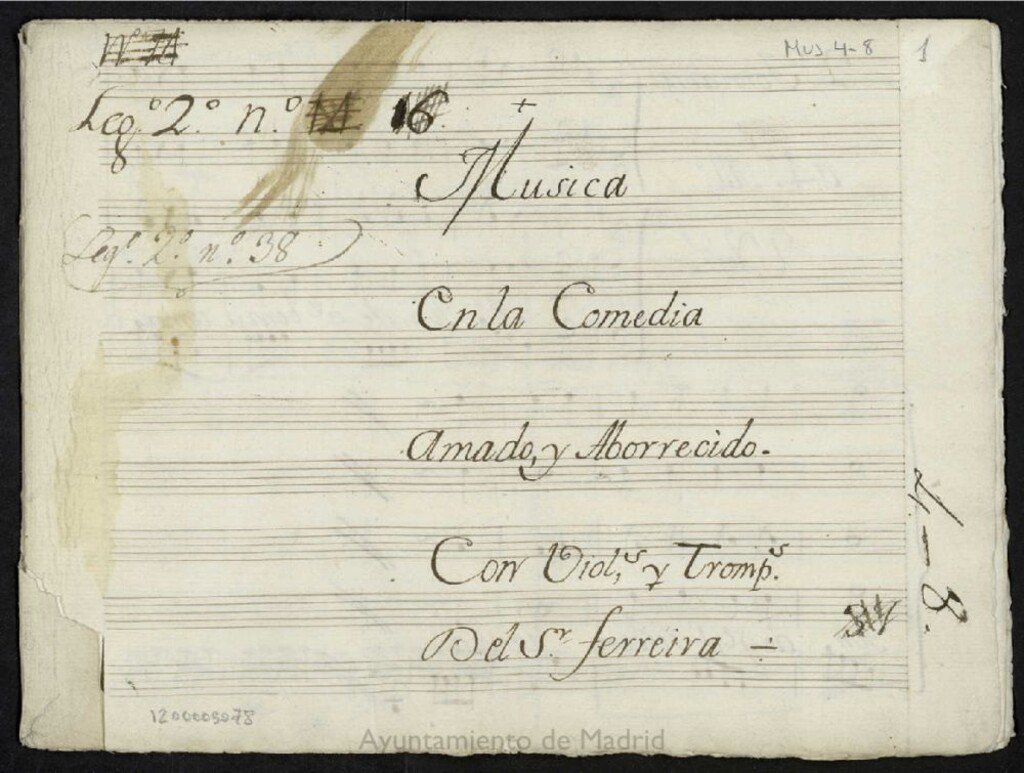 Mus 4-8
1
Leg.º 2.º n.º 16
8
+
Musica
Leg.º 2.º n.º 38
En la Comedia
Amado, y Aborrecido.
Con Viol.s y Tromp.s
Del S.r ferreira
4-8.
1200005078
Ayuntamiento de Madrid